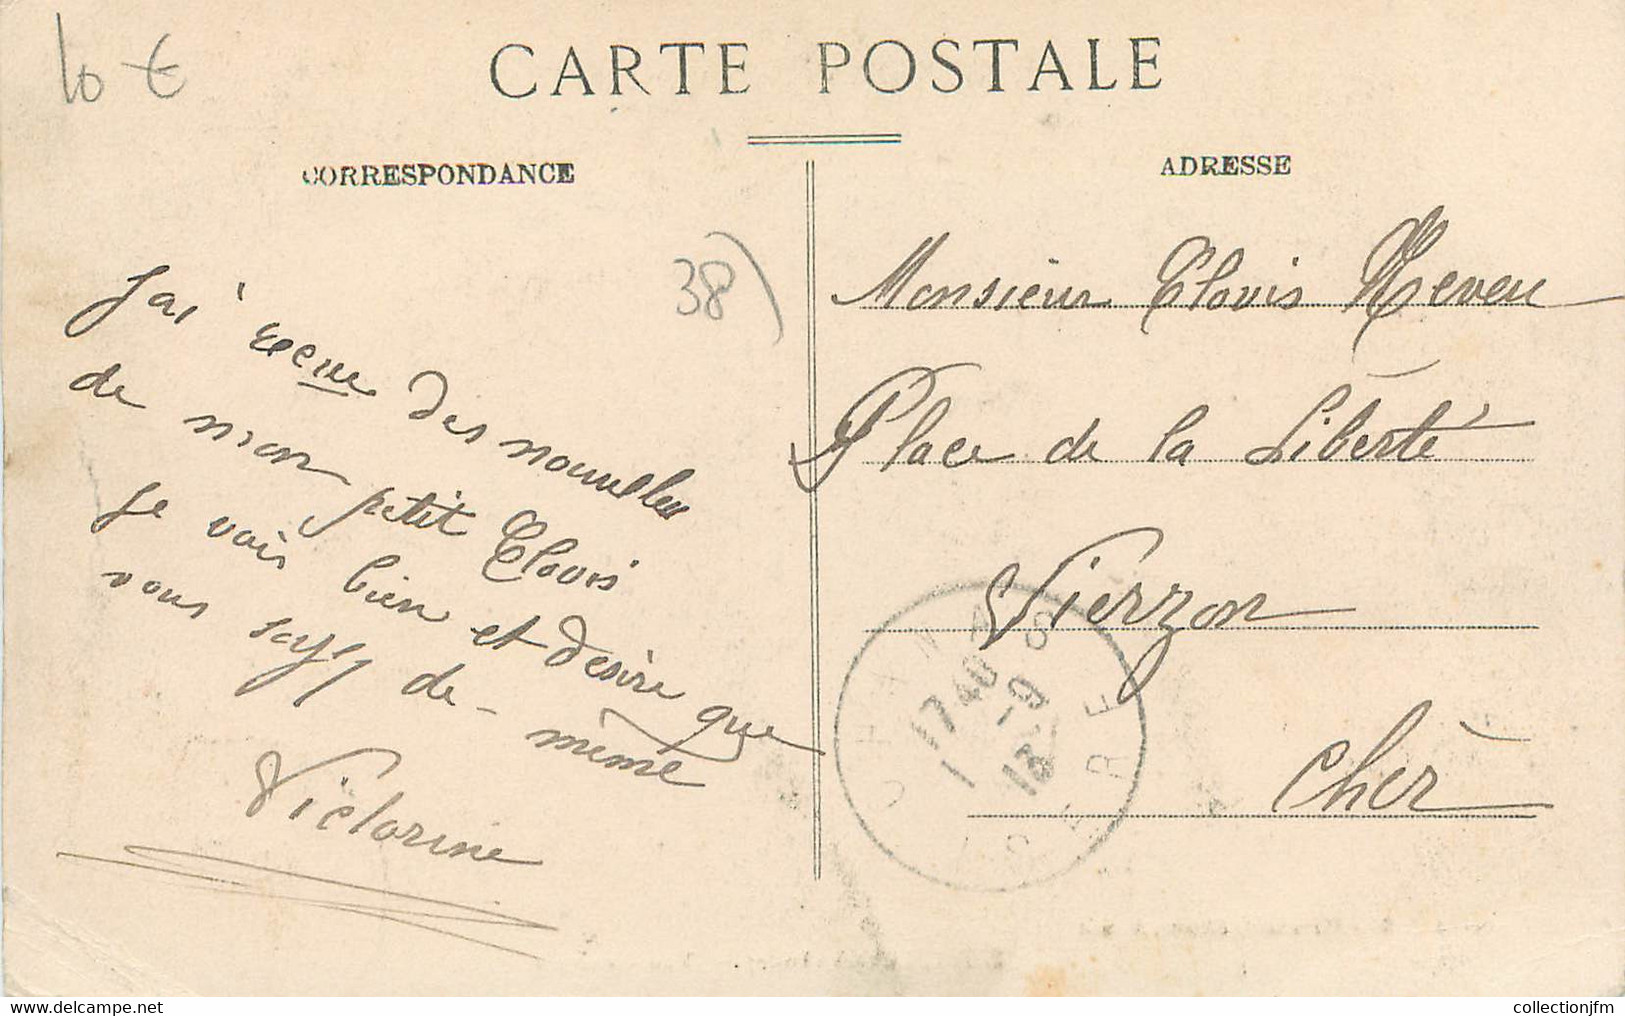 10 €
CARTE POSTALE
CORRESPONDANCE
ADRESSE
38)
J'ai reçue des nouvelles
de mon petit Clovis
je vais bien et désire que
vous soyez de-même
Victorine
Monsieur Clovis Neveu
Place de la Liberté
Vierzon
Cher
CHANAS
17 40
1 - 9
13
ISERE
collectionjfm